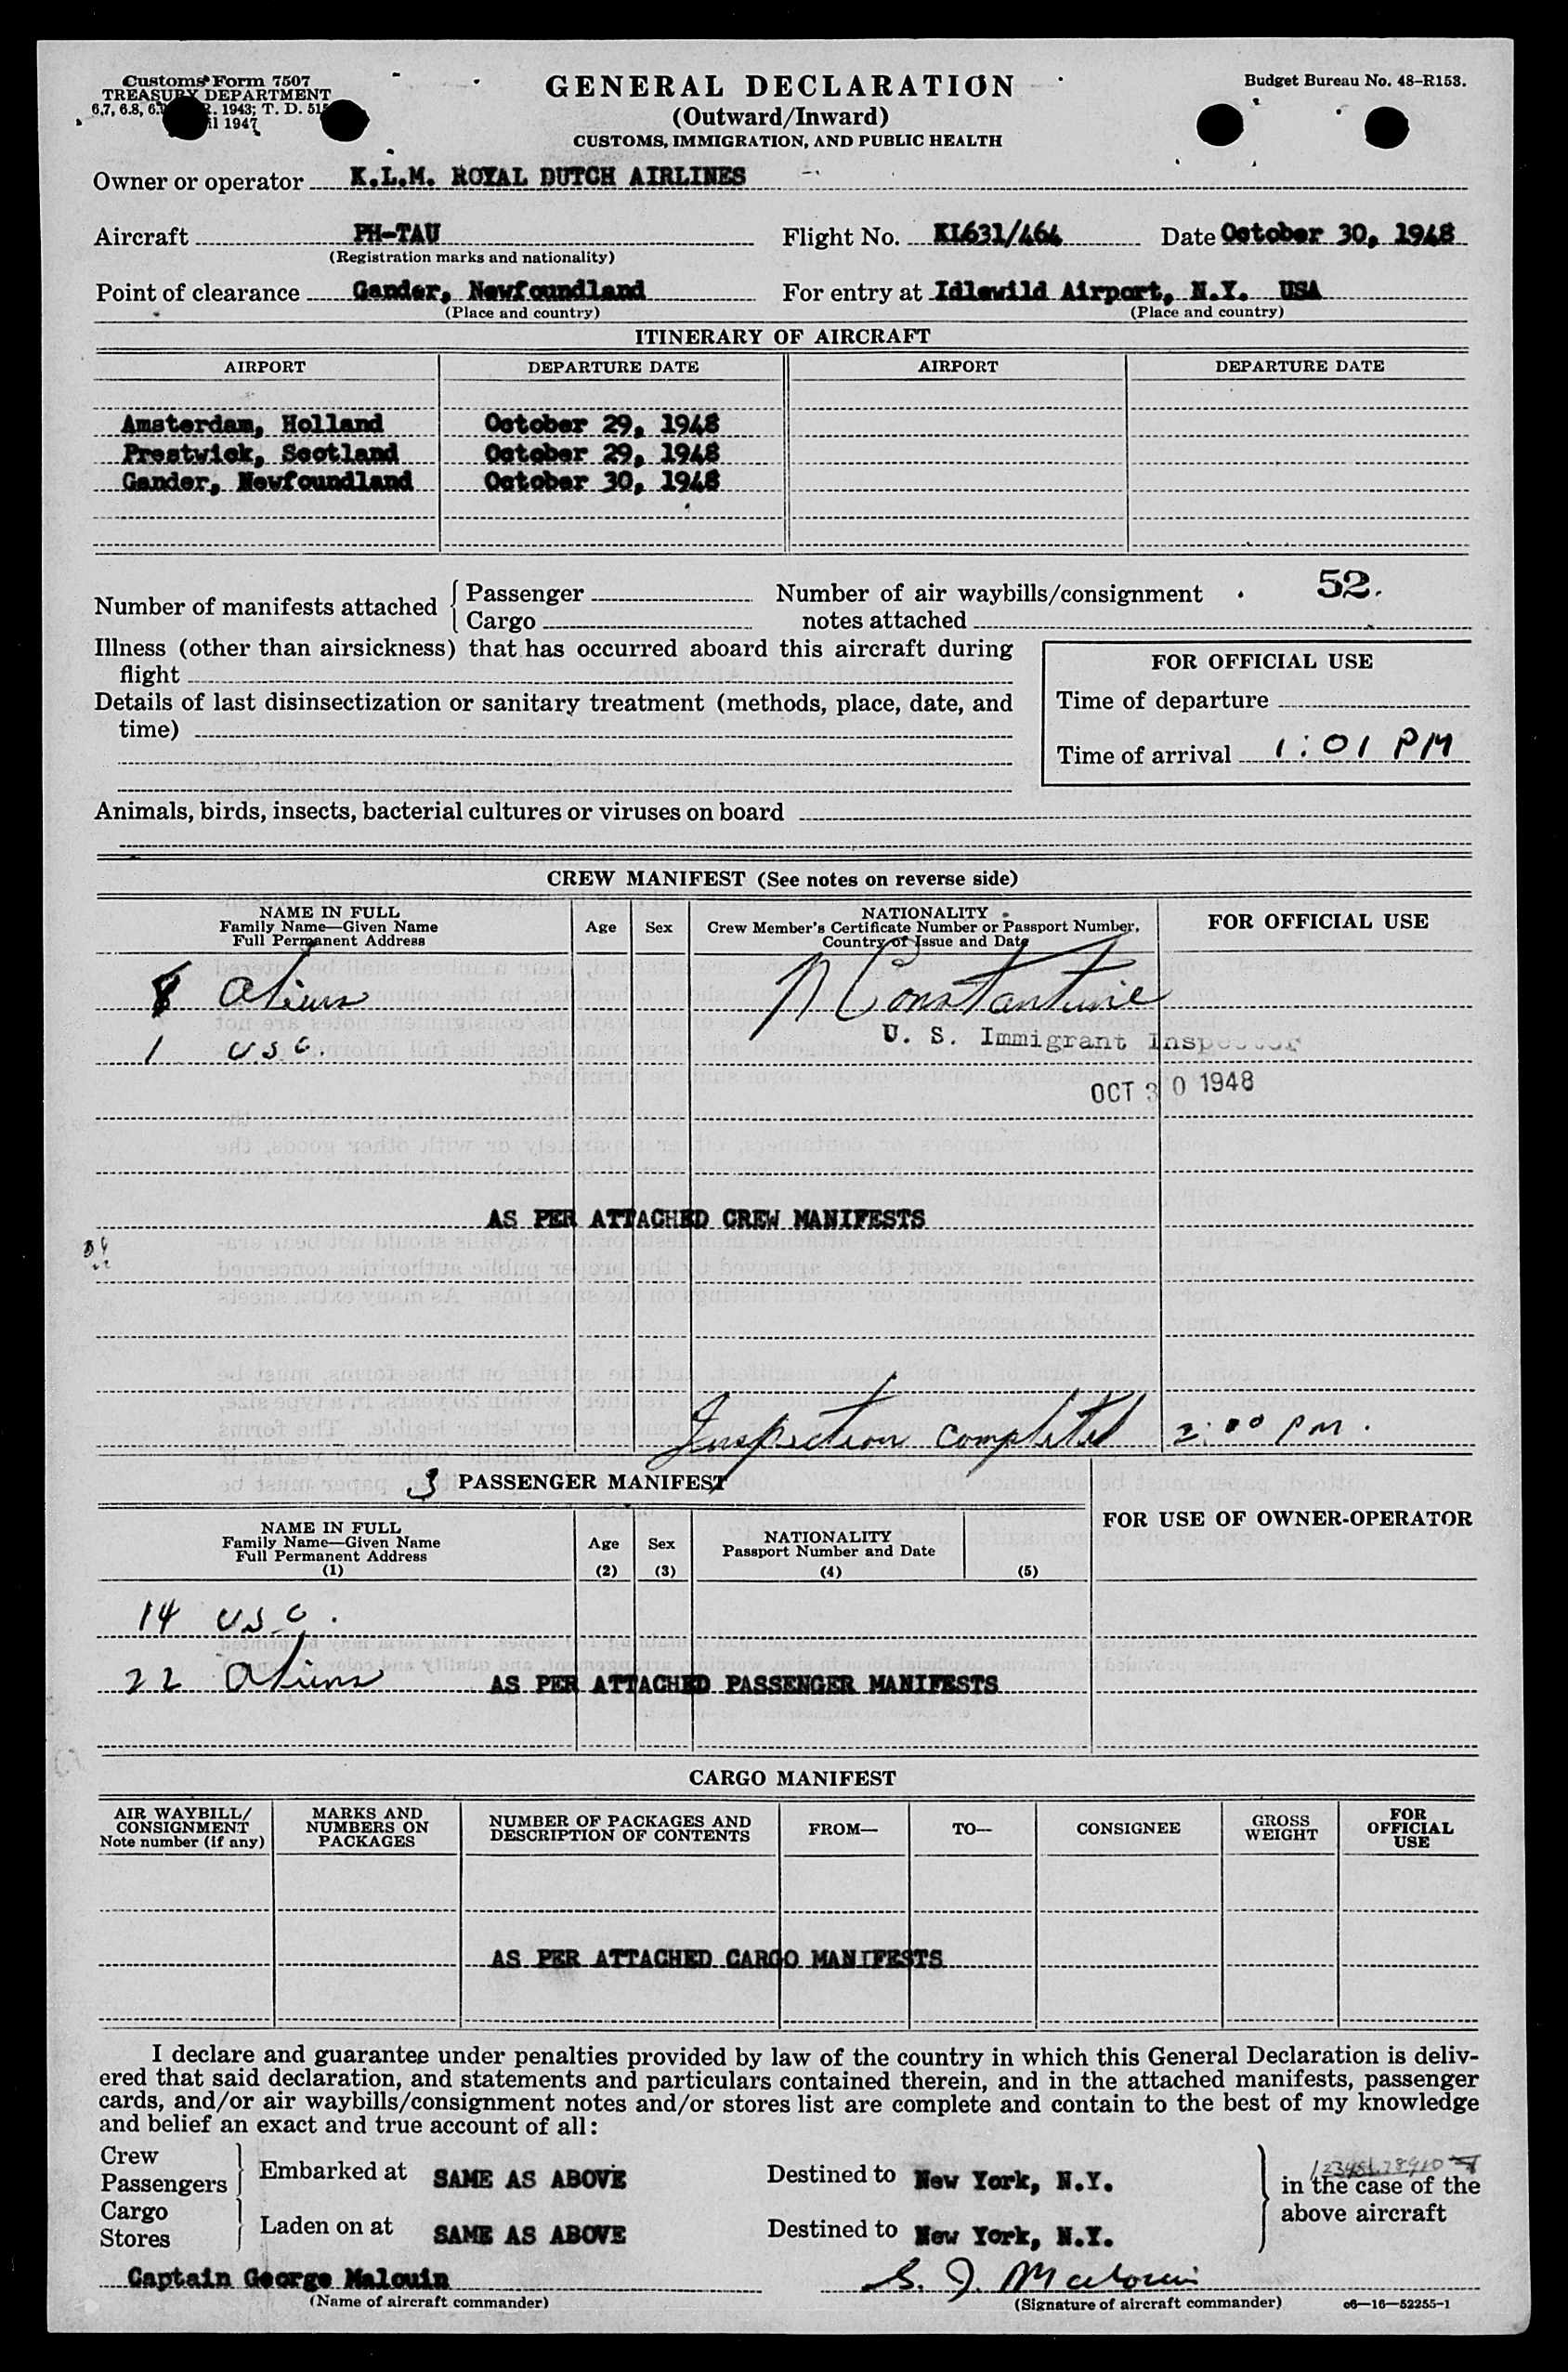 Customs Form 7507
TREASURY DEPARTMENT
6.7, 6.8, 1943; T. D.
1947
GENERAL DECLARATION
(Outward/Inward)
CUSTOMS, IMMIGRATION, AND PUBLIC HEALTH
Budget Bureau No. 48-R153.
Owner or operator K.L.M. ROYAL DUTCH AIRLINES
Aircraft PH-TAU Flight No. KL631/464 Date October 30, 1948
(Registration marks and nationality)
Point of clearance Gander, Newfoundland For entry at Idlewild Airport, N.Y. USA
(Place and country) (Place and country)
ITINERARY OF AIRCRAFT
AIRPORT DEPARTURE DATE AIRPORT DEPARTURE DATE
Amsterdam, Holland October 29, 1948
Prestwick, Scotland October 29, 1948
Gander, Newfoundland October 30, 1948
Number of manifests attached { Passenger Number of air waybills/consignment 52.
Cargo notes attached
Illness (other than airsickness) that has occurred aboard this aircraft during
flight
Details of last disinsectization or sanitary treatment (methods, place, date, and
time)
FOR OFFICIAL USE
Time of departure
Time of arrival 1:01 PM
Animals, birds, insects, bacterial cultures or viruses on board
CREW MANIFEST (See notes on reverse side)
NAME IN FULL
Family Name—Given Name
Full Permanent Address
Age Sex
NATIONALITY
Crew Member's Certificate Number or Passport Number,
Country of Issue and Date
FOR OFFICIAL USE
8 Aliens N Constantine
1 U.S.C. U. S. Immigrant Inspector
OCT 30 1948
AS PER ATTACHED CREW MANIFESTS
Inspection completed 2:00 PM.
3 PASSENGER MANIFEST
FOR USE OF OWNER-OPERATOR
NAME IN FULL
Family Name—Given Name
Full Permanent Address
(1)
Age
(2)
Sex
(3)
NATIONALITY
Passport Number and Date
(4) (5)
14 U.S.C.
22 Aliens AS PER ATTACHED PASSENGER MANIFESTS
CARGO MANIFEST
AIR WAYBILL/
CONSIGNMENT
Note number (if any)
MARKS AND
NUMBERS ON
PACKAGES
NUMBER OF PACKAGES AND
DESCRIPTION OF CONTENTS
FROM— TO— CONSIGNEE
GROSS
WEIGHT
FOR
OFFICIAL
USE
AS PER ATTACHED CARGO MANIFESTS
I declare and guarantee under penalties provided by law of the country in which this General Declaration is deliv-
ered that said declaration, and statements and particulars contained therein, and in the attached manifests, passenger
cards, and/or air waybills/consignment notes and/or stores list are complete and contain to the best of my knowledge
and belief an exact and true account of all:
Crew
Passengers } Embarked at SAME AS ABOVE Destined to New York, N.Y.
Cargo
Stores } Laden on at SAME AS ABOVE Destined to New York, N.Y.
in the case of the
above aircraft
Captain George Malouin G. J. Malouin
(Name of aircraft commander) (Signature of aircraft commander) c6—16—52255-1